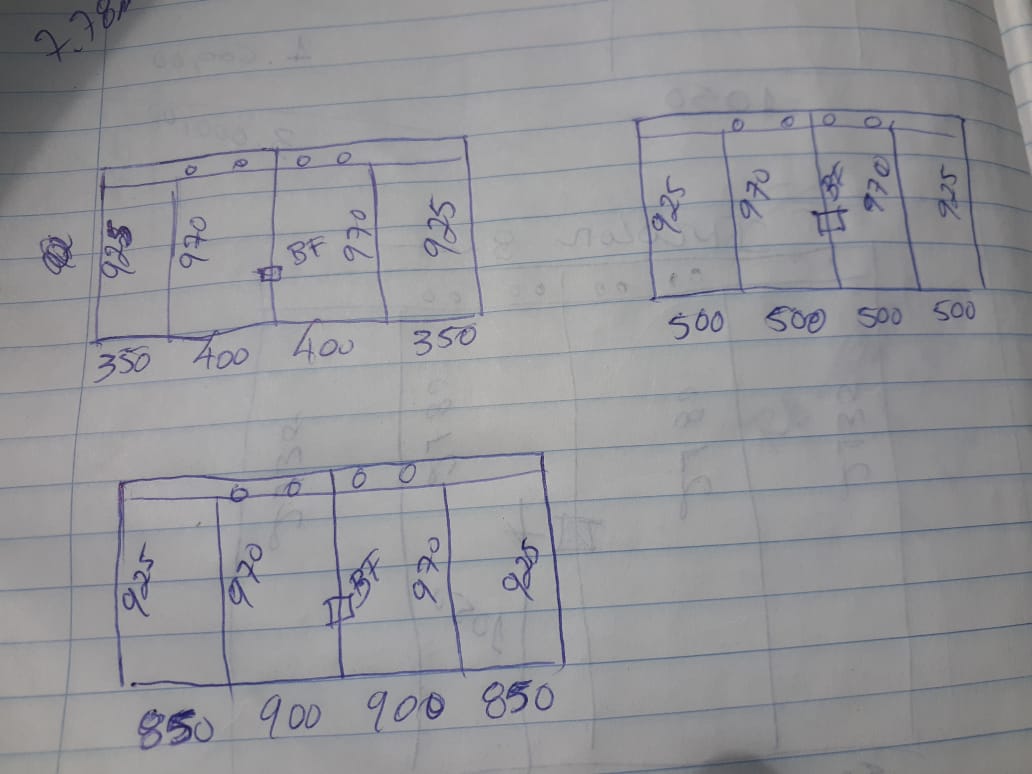 7.78m
925 970 BF 970 925
350 400 400 350
925 970 BF 970 925
500 500 500 500
925 970 BF 970 925
850 900 900 850